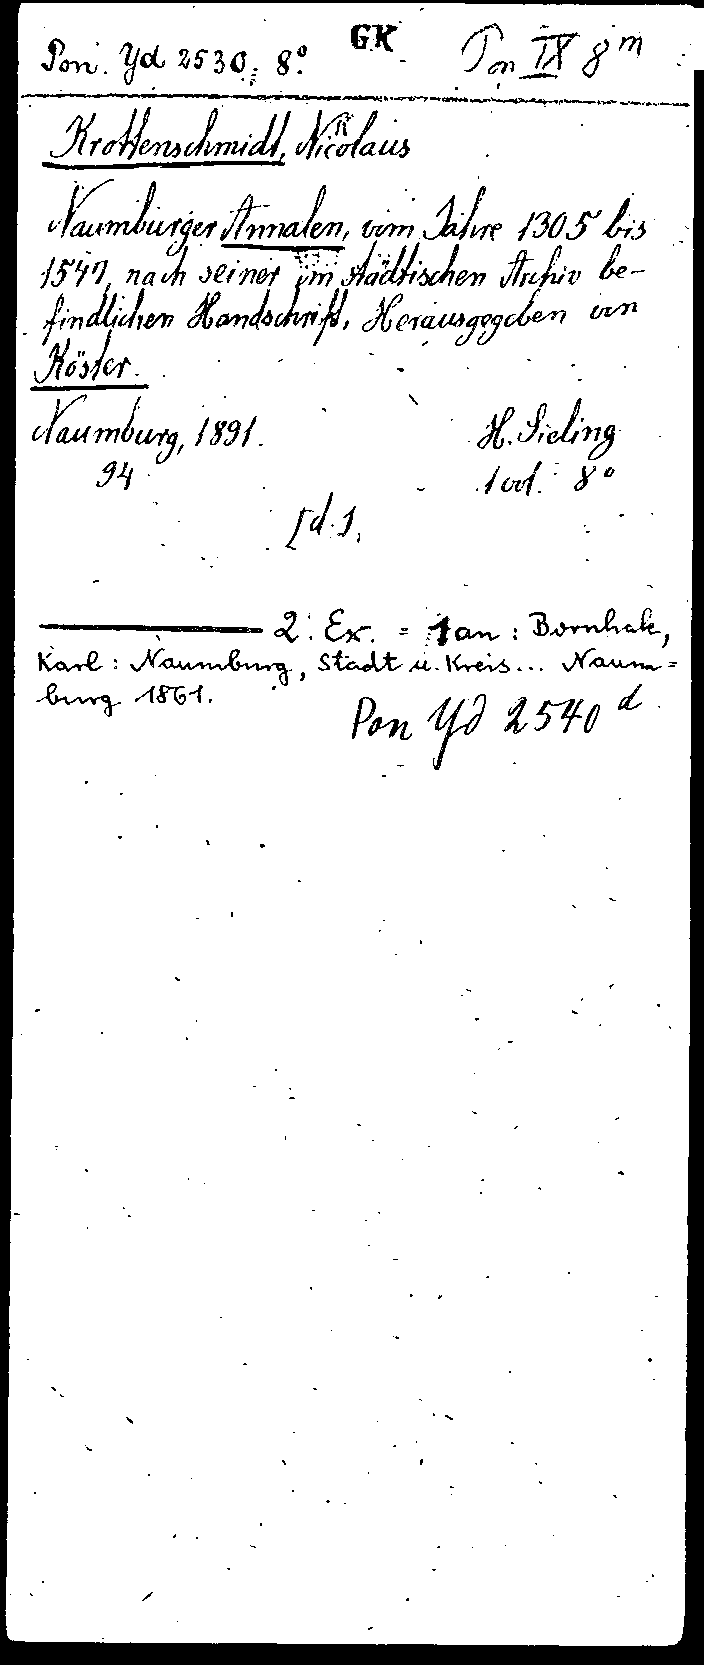 Pon. Yd 2530, 8°. GK Pon IX 8 m
Krottenschmidt, Nicolaus
Naumburger Annalen, vom Jahre 1305 bis
1547, nach seiner im städtischen Archiv be-
findlichen Handschrift. Herausgegeben von
Köster.
Naumburg, 1891. H. Sieling
94 1 vol. 8°
2. Ex. = 1 an: Bornhak,
Karl: Naumburg, Stadt u. Kreis... Naum=
burg 1861.
Pon Yd 2540 d